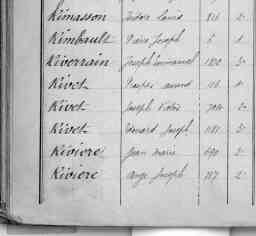 Rimasson Isidore Louis 216 2
Rimbault Pierre Joseph 6 1
Riverrain Joseph Emmanuel 1210 3
Rivet 116 1
Rivet Joseph Victor 2
Rivet Edouard Joseph 1181 3
Riviere Jean Marie 690 2
Riviere Ange Joseph 117 2